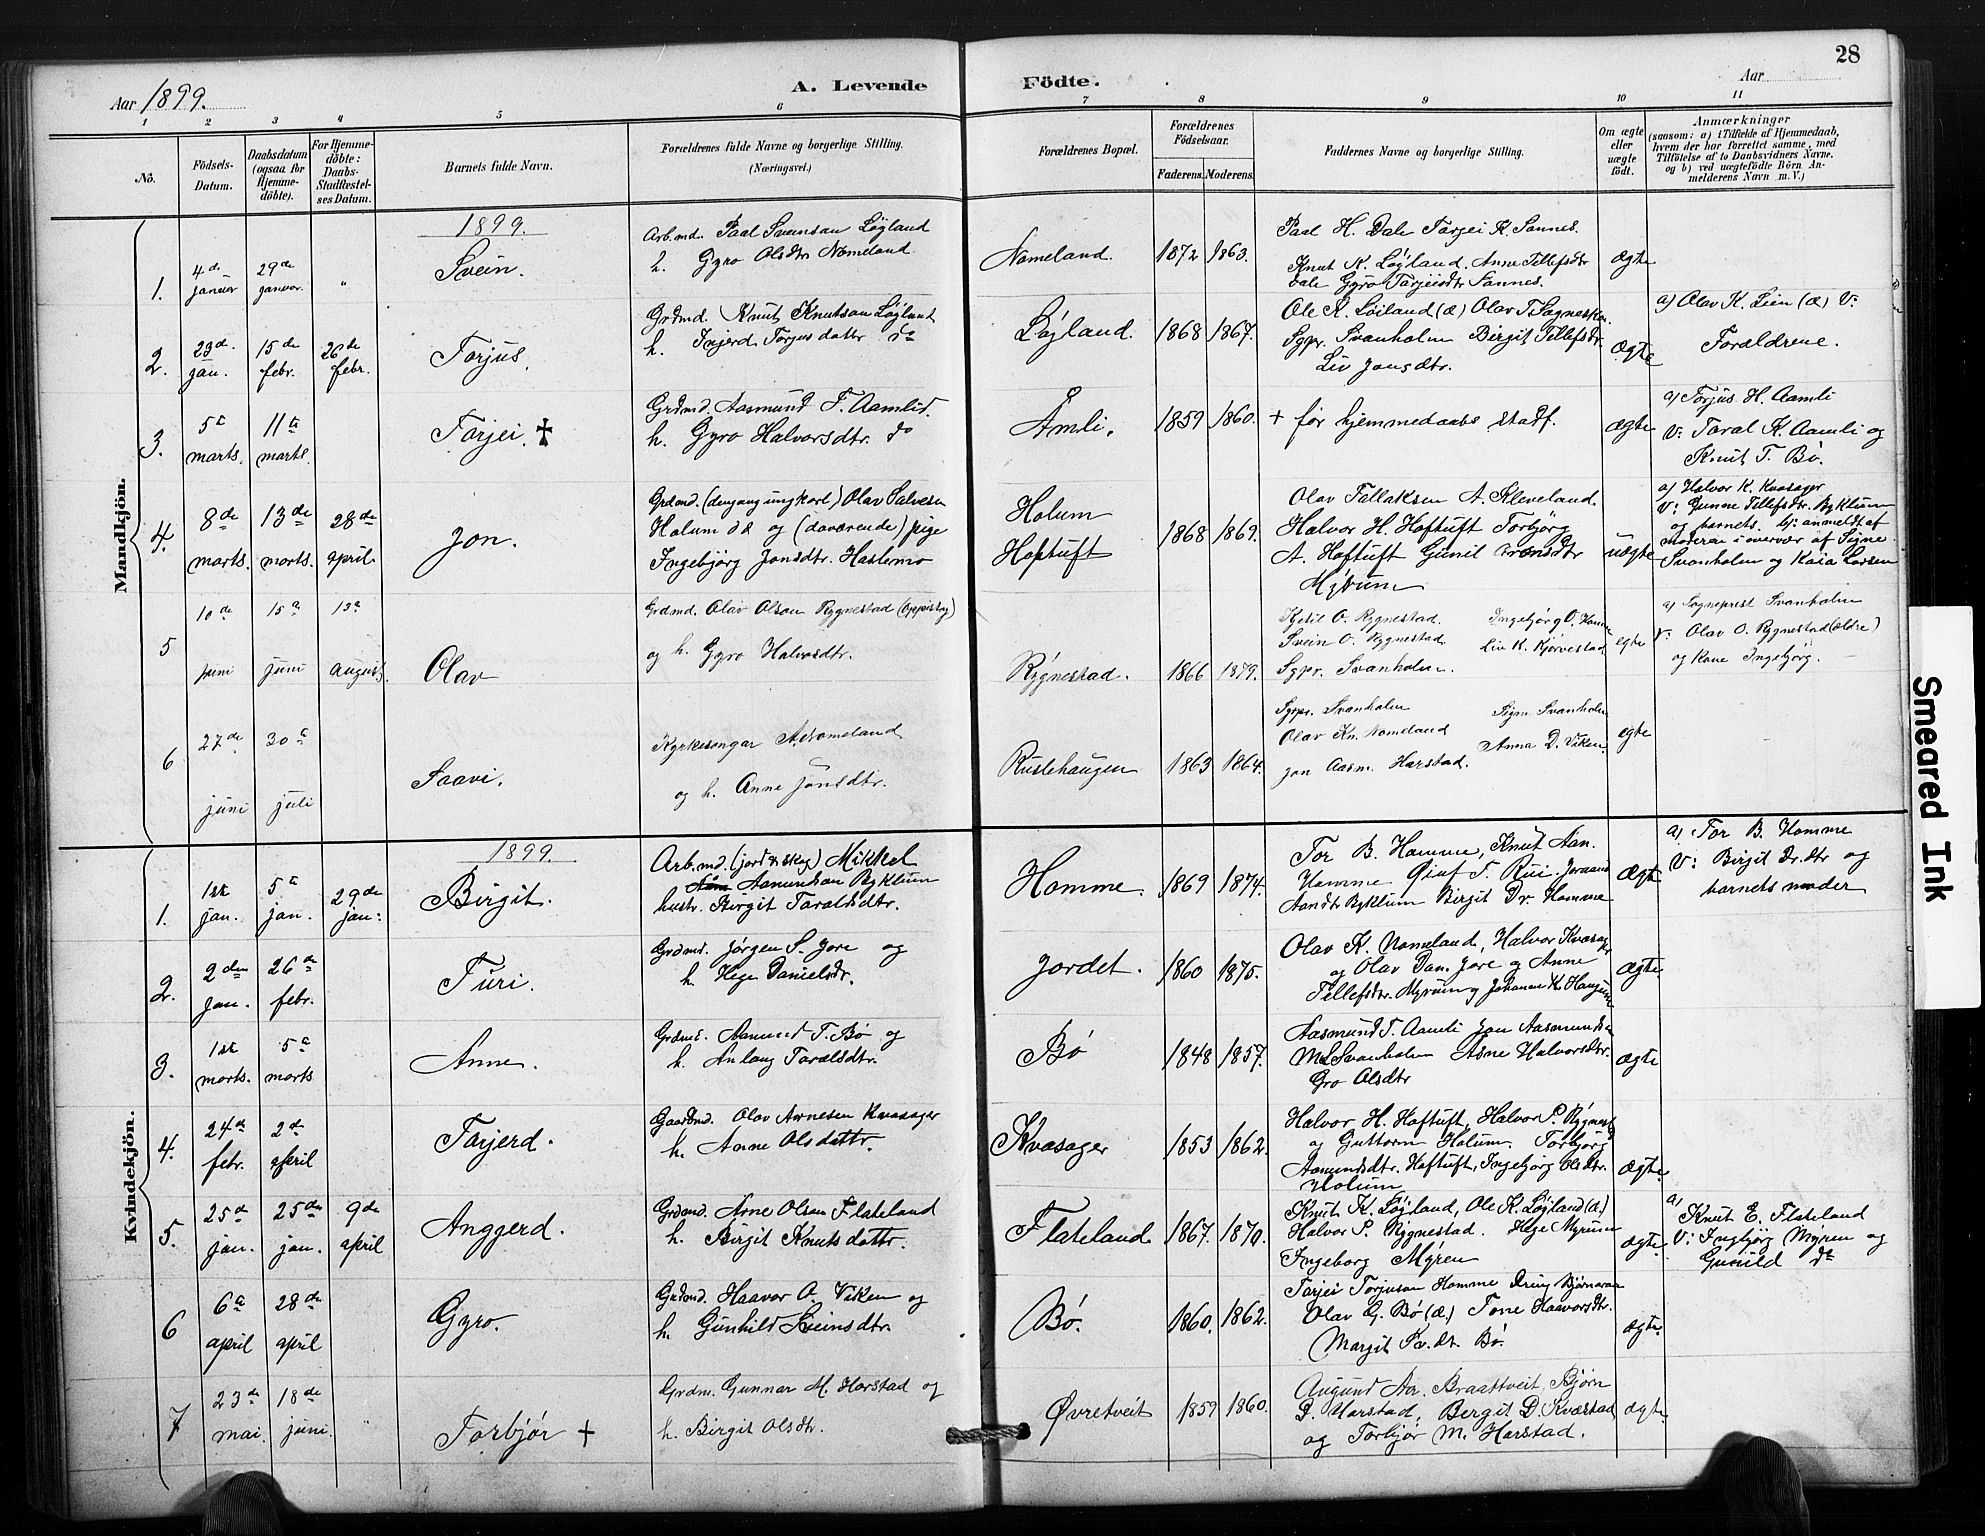 28
Aar 1899.
A. Levende Födte.
Aar
1 2 3 4 5 6 7 8 9 10 11
No.
Födsels-
Datum.
Daabsdatum
(ogsaa for
Hjemme-
döbte).
For Hjemme-
döbte:
Daabs-
Stadfæstel-
ses Datum.
Barnets fulde Navn.
Forældrenes fulde Navne og borgerlige Stilling.
(Næringsvei.)
Forældrenes Bopæl.
Forældrenes
Födselsaar.
Faderens. Moderens.
Faddernes Navne og borgerlige Stilling.
Om ægte
eller
uægte
födt.
Anmærkninger
(saasom: a) i Tilfælde af Hjemmedaab,
hvem der har forrettet samme, med
Tilföielse af to Daabsvidners Navne,
og b) ved uægtefödte Börn An-
melderens Navn m. V.)
Mandkjön.
1899.
1.
4de januar
29de januar.
"
Svein.
Arb.md. Paal Sveinsan Løgland
h. Gyro Olsdtr Nomeland
Nomeland.
1872 1863.
Paal H. Dale Tarjei K. Sannes.
Knut K. Løgland. Anne Tellefsdtr
Dale Gyro Tarjeisdtr Sannes.
ægte
2.
23de jan.
15de febr.
26de febr.
Torjus.
Grdmd. Knut Knutsan Løgland
h. Injerd Torjusdattr do
Løgland.
1868 1867.
Ole K. Løiland (æ) Olav T
Sgpr. Svanholm Birgit Tellefsdtr.
Liv Jonsdtr.
ægte
a) Olav K. Lien (æ) V:
Forældrene.
3.
5te marts.
11te marts.
Tarjei. ✝
Grdmd. Aasmund T. Aamlid.
h. Gyro Halvorsdtr. do
Åmli.
1859 1860.
+ før hjemmedaabs stadf.
ægte
a) Torjus H. Aamli
V: Taral K. Aamli og
Knut T. Bø.
4.
8de marts.
13de marts.
28de april.
Jon.
Grdmd. (dengang ungkarl) Olav Salvesen
Holum og (daværende) pige
Ingebjørg Jonsdtr. Haslemo
Holum
Hoftuft
1868 1869.
Olav Tellaksen A. Kleveland.
Halvor H. Hoftuft Torbjørg
A. Hoftuft Gunil
Myrum
uægte
a) Halvor K. Kvasager
V: Gunne Tellefsdtr. Byklum
og barnets. b): anmeldt af
moderen i overvær af Signe
Svanholm og Kaia Larsen
5
10de juni
15de juni
13de august.
Olav
Grdmd. Olav Olson Rygnestad (oppistog)
og h. Gyro Halvosdtr.
Rygnestad.
1866 1879.
Kjetil O. Rygnestad. Ingebjørg O. Homme
Svein O. Rygnestad. Liv K. Kjørvestad
Sgpr. Svanholm.
egte
a) Sogneprest Svanholm
V: Olav O. Rygnestad (ældre)
og kone Ingebjørg.
6
27de juni
30te juli
Saavi.
Kyrkesongar A. Nomeland
og h. Anne Jonsdtr.
Rustehaugen
1863 1864.
Sgpr. Svanholm Signe Svanholm
Olav Kn. Nomeland Anna D. Viken
Jon Aasm. Harstad.
egte
Kvindekjön.
1899.
1.
1st jan.
5te jan.
29de jan:
Birgit.
Arb.md. (jord & skog) Mikkel
Aamundsan Byklum
hustr. Birgit Taralsdtr.
Homme.
1869 1874.
Tor B. Homme, Knut Aan.
Homme Gjuf T. Rui.
Aansdtr Byklum Birgit Dr. Homme
ægte
a) Tor B. Homme
V: Birgit Dr.dtr og
barnets moder
2.
2den jan.
26de febr.
Turi.
Grdmd. Jørgen S. Jore og
h. Hege Danielsdtr.
Jordet.
1860 1875.
Olav K. Nomeland, Halvor Kvasager
og Olav Dan. Jore og Anne
Tellefsdtr. Myrum og Johanne K. Haugum
ægte
3.
1st marts.
5te marts
Anne.
Grdmd. Aamund T. Bø og
h. Anlaug Taralsdtr.
Bø
1848 1857.
Aasmund T. Aamli Jon Aasmundsn
M L Svanholm Asne Halvorsdtr.
Gro Olsdtr
ægte
4.
24de febr.
2de april
Tarjerd.
Gaardmd. Olav Arnesen Kvasager
h. Anne Olsdattr.
Kvasager
1853 1862.
Halvor H. Hoftuft, Halvor P. Rygnest
og Guttorm Holum. Torbjørg
Aamundsdtr. Hoftuft, Ingebjørg Olsdtr.
Holum
ægte
5.
25de jan.
25de jan.
9de april
Anggerd.
Grdmd. Arne Olsan Flateland
h. Birgit Knutsdattr.
Flateland
1867. 1870.
Knut K. Løgland, Ole K. Løgland (æ)
Halvor P. Rygnestad. Hege Myrum
Ingeborg Myren
ægte
a) Knut E. Flateland
V: Ingbjørg Myren og
Gunild do
6
6te april
28de april
Gyro.
Grdmd. Haavor O. Viken og
h. Gunhild Sveinsdtr.
Bø.
1860. 1862.
Tarjei Torjusan Homme Dreng Bjørnaraa
Olav G. Bø (æ) Tone Haavorsdtr.
Margit Sv.dt Bø.
ægte
7
23de mai.
18de juni.
"
Torbjør +
Grdm. Gunnar M. Harstad og
h. Birgit Olsdtr.
Øvretveit
1859 1860.
Augund Aa. Braattveit, Bjørn
P. Harstad, Bergit D. Kvæstad
og Torbjør M. Harstad.
ægte
Smeared Ink